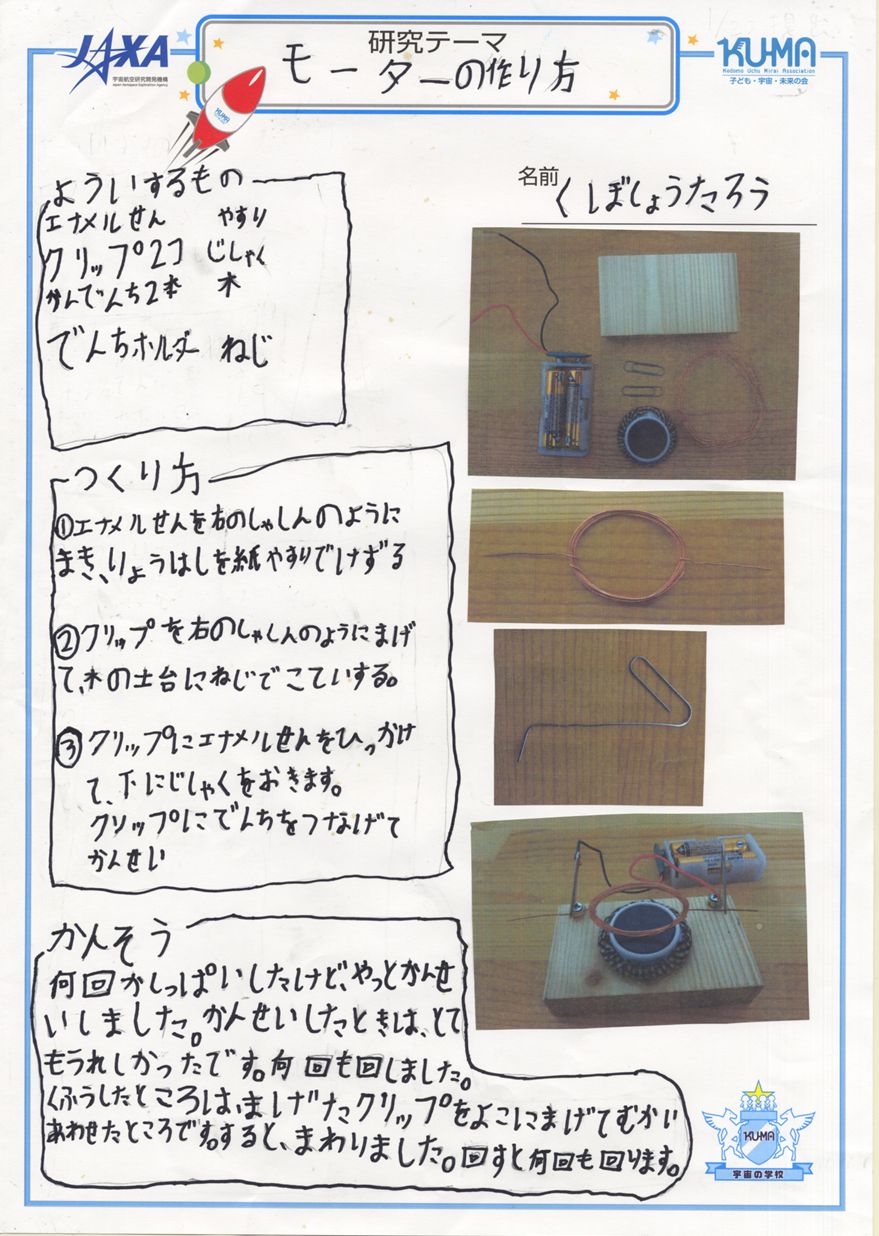 JAXA
宇宙航空研究開発機構
Japan Aerospace Exploration Agency
研究テーマ
モーターの作り方
KU-MA
Kodomo Uchu Mirai Association
子ども・宇宙・未来の会
KU-MA
名前
くぼしょうたろう
よういするもの
エナメルせん やすり
クリップ2コ じしゃく
かんでんち2本 木
でんちホルダー ねじ
つくり方
①エナメルせんを右のしゃしんのように
まき、りょうはしを紙やすりでけずる
②クリップを右のしゃしんのようにまげ
て、木の土台にねじでこていする。
③クリップにエナメルせんをひっかけ
て、下にじしゃくをおきます。
クリップにでんちをつなげて
かんせい
かんそう
何回かしっぱいしたけど、やっとかんせ
いしました。かんせいしたときは、とて
もうれしかったです。何回も回しました。
くふうしたところは、まげたクリップをよこにまげてむかい
あわせたところです。すると、まわりました。回すと何回も回ります。
KU-MA
宇宙の学校